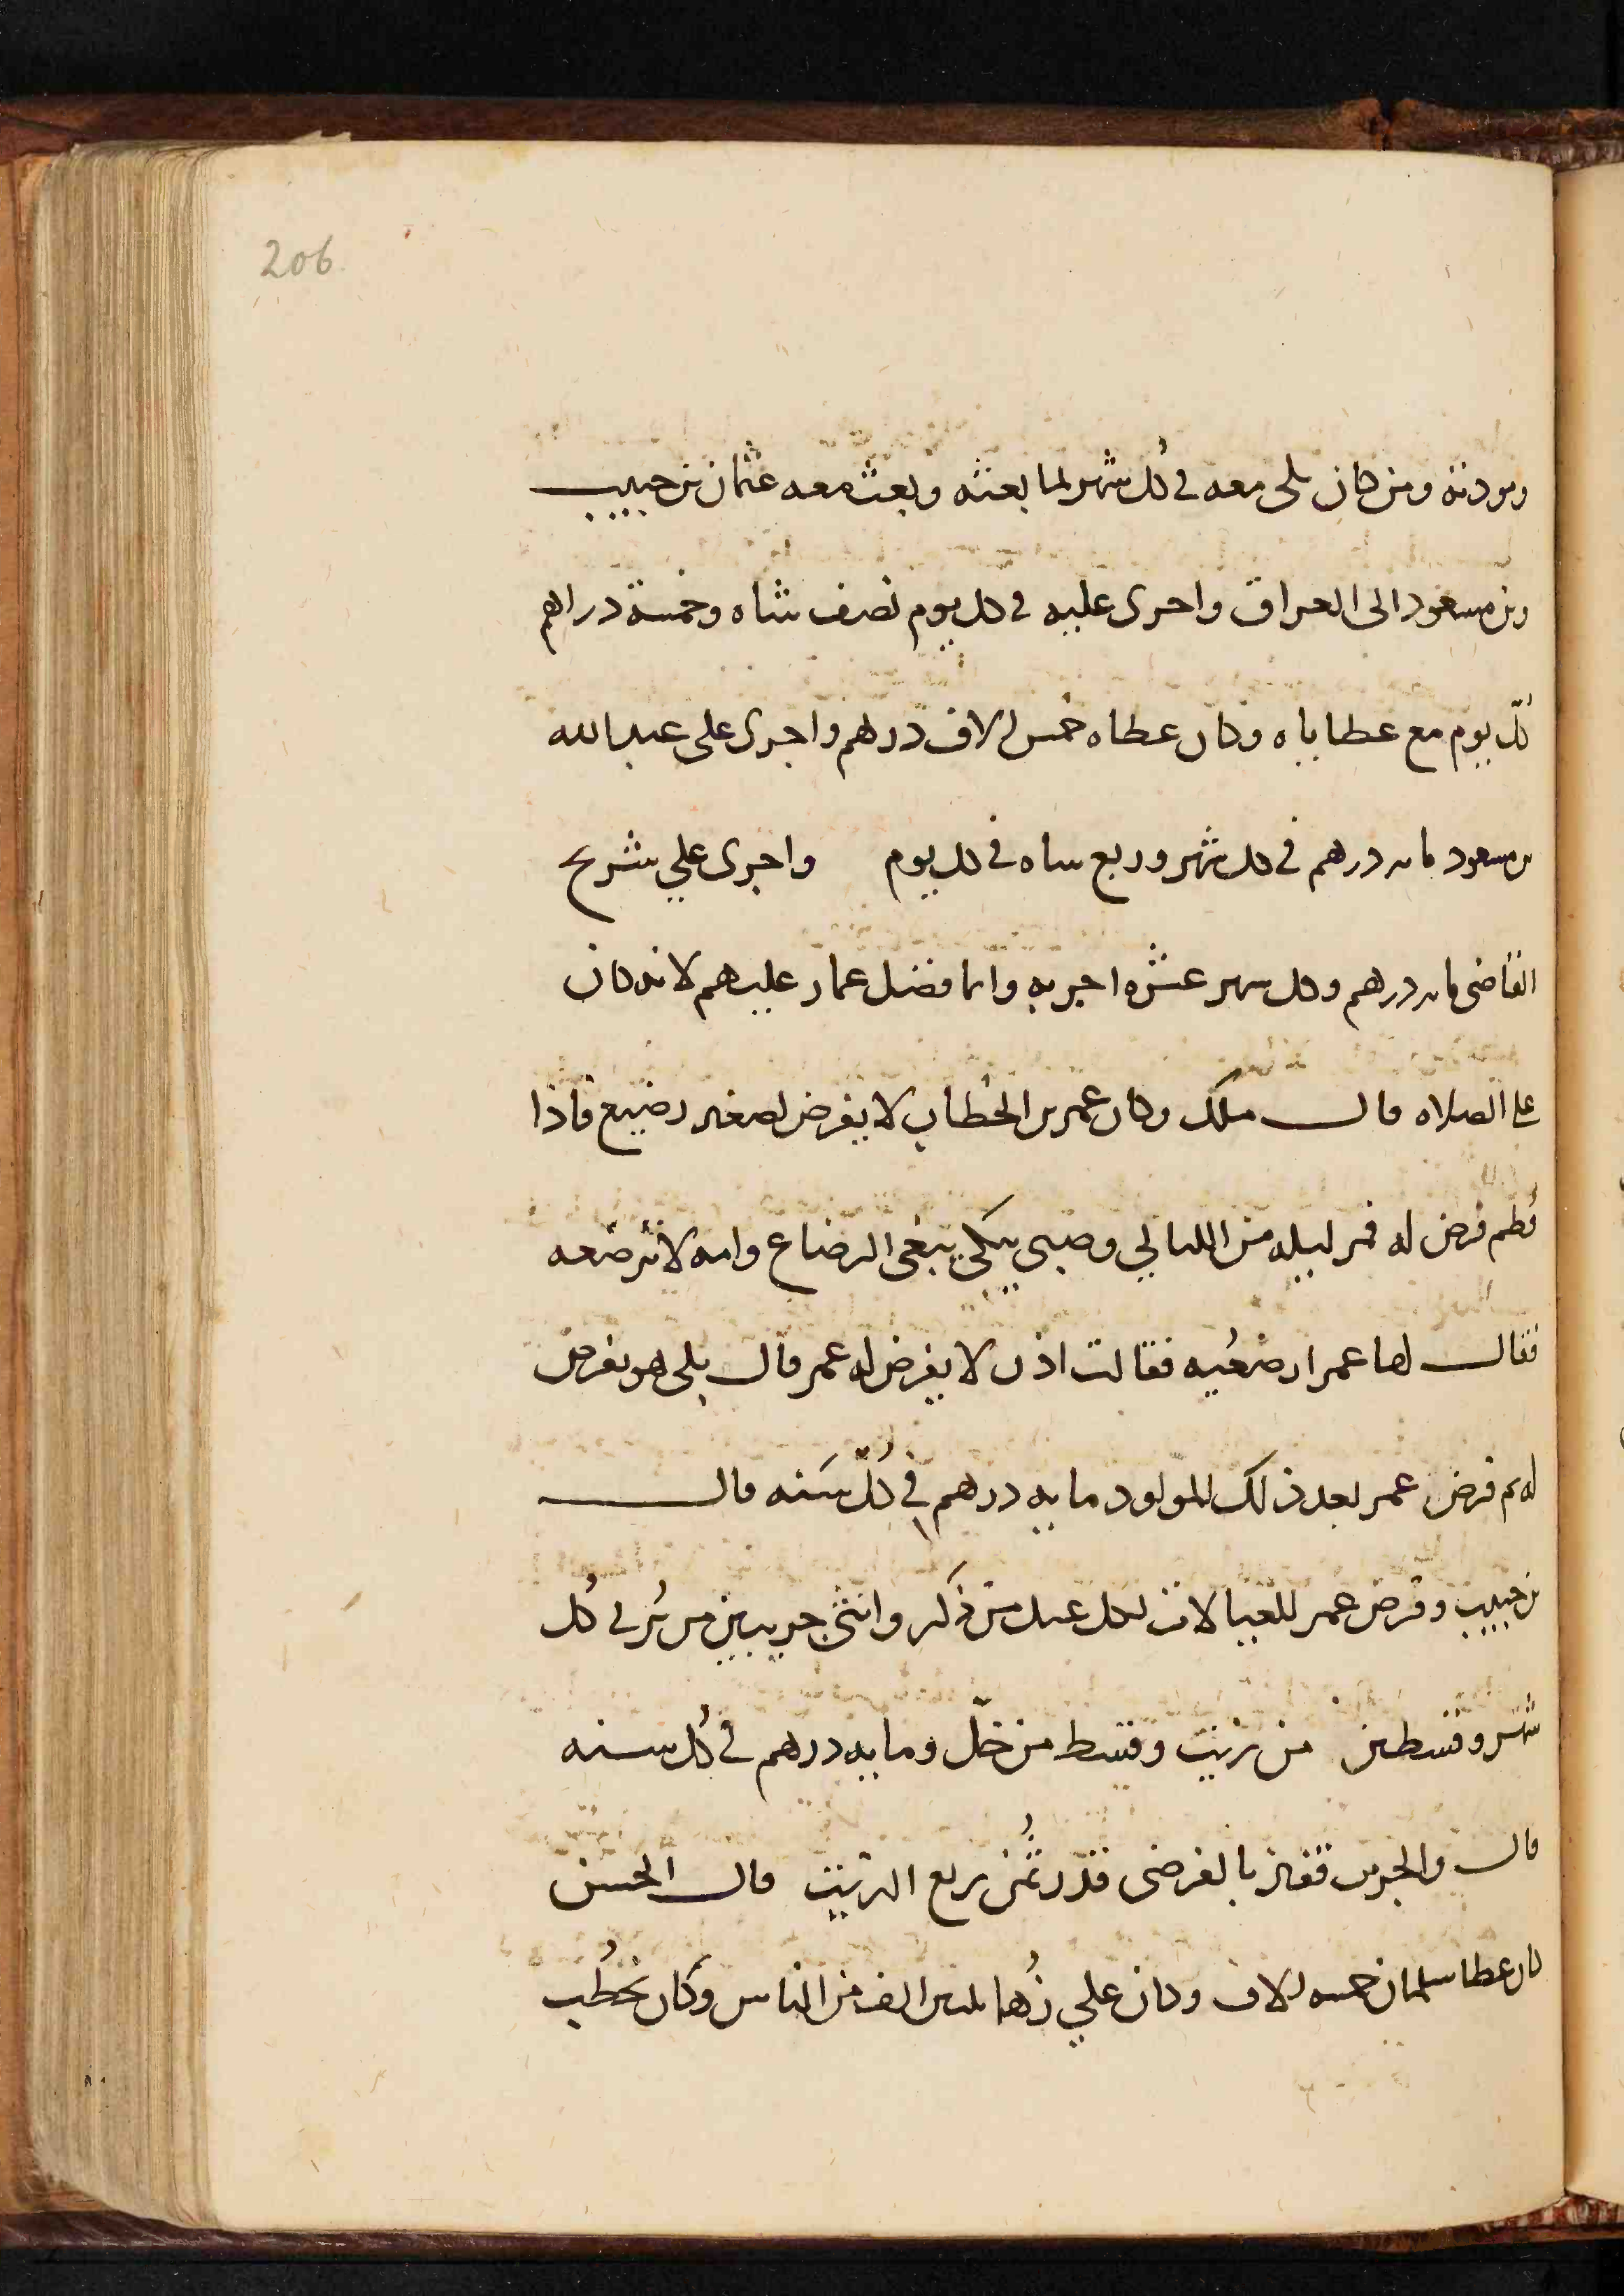 206
ومودنه ومن كان يلى معه في كُل شهر لما بعثه وبعث معه عثمان بن حبيب
وبن مسعود الى العراق واجرى عليه في كل يوم نصف شاه وخمسة دراهم
كلّ يوم مع عطاياه وكان عطاه خمس الاف درهم واجرى على عبد الله
بن مسعود مايه درهم في كل شهر وربع شاه في كل يوم واجرى علي شريح
القاضى مايه درهم وكل شهر عشره اجربه وانما فضل عمار عليهم لانه كان
على الصلاه قال ملك وكان عمر بن الخطاب لا يفرض لصغير رضيع فاذا
فُطم فرض له فمر ليله من الليالي وصبى يبكي يبغى الرضاع وامه لا ترضعه
فقال لها عمر ارضعيه فقالت اذن لا يفرض له عمر قال بلى هو يفرض
له ثم فرض عمر بعد ذلك للمولود مايه درهم في كُلّ سَنه قال
بن حبيب وفرض عمر للعيالات لكل عيل من ذكر وانثى جريبين من بُر في كُل
شهر وقسطين من زيت وقسط من خلّ ومايه درهم في كُل سنه
قال والجريب قفيز بالقرضى قدر ثُمن ربع الزيت قال الحسن
كان عطا سلمان خمسه الاف وكان علي زُها ثلثين الف من الناس وكان يخطُب